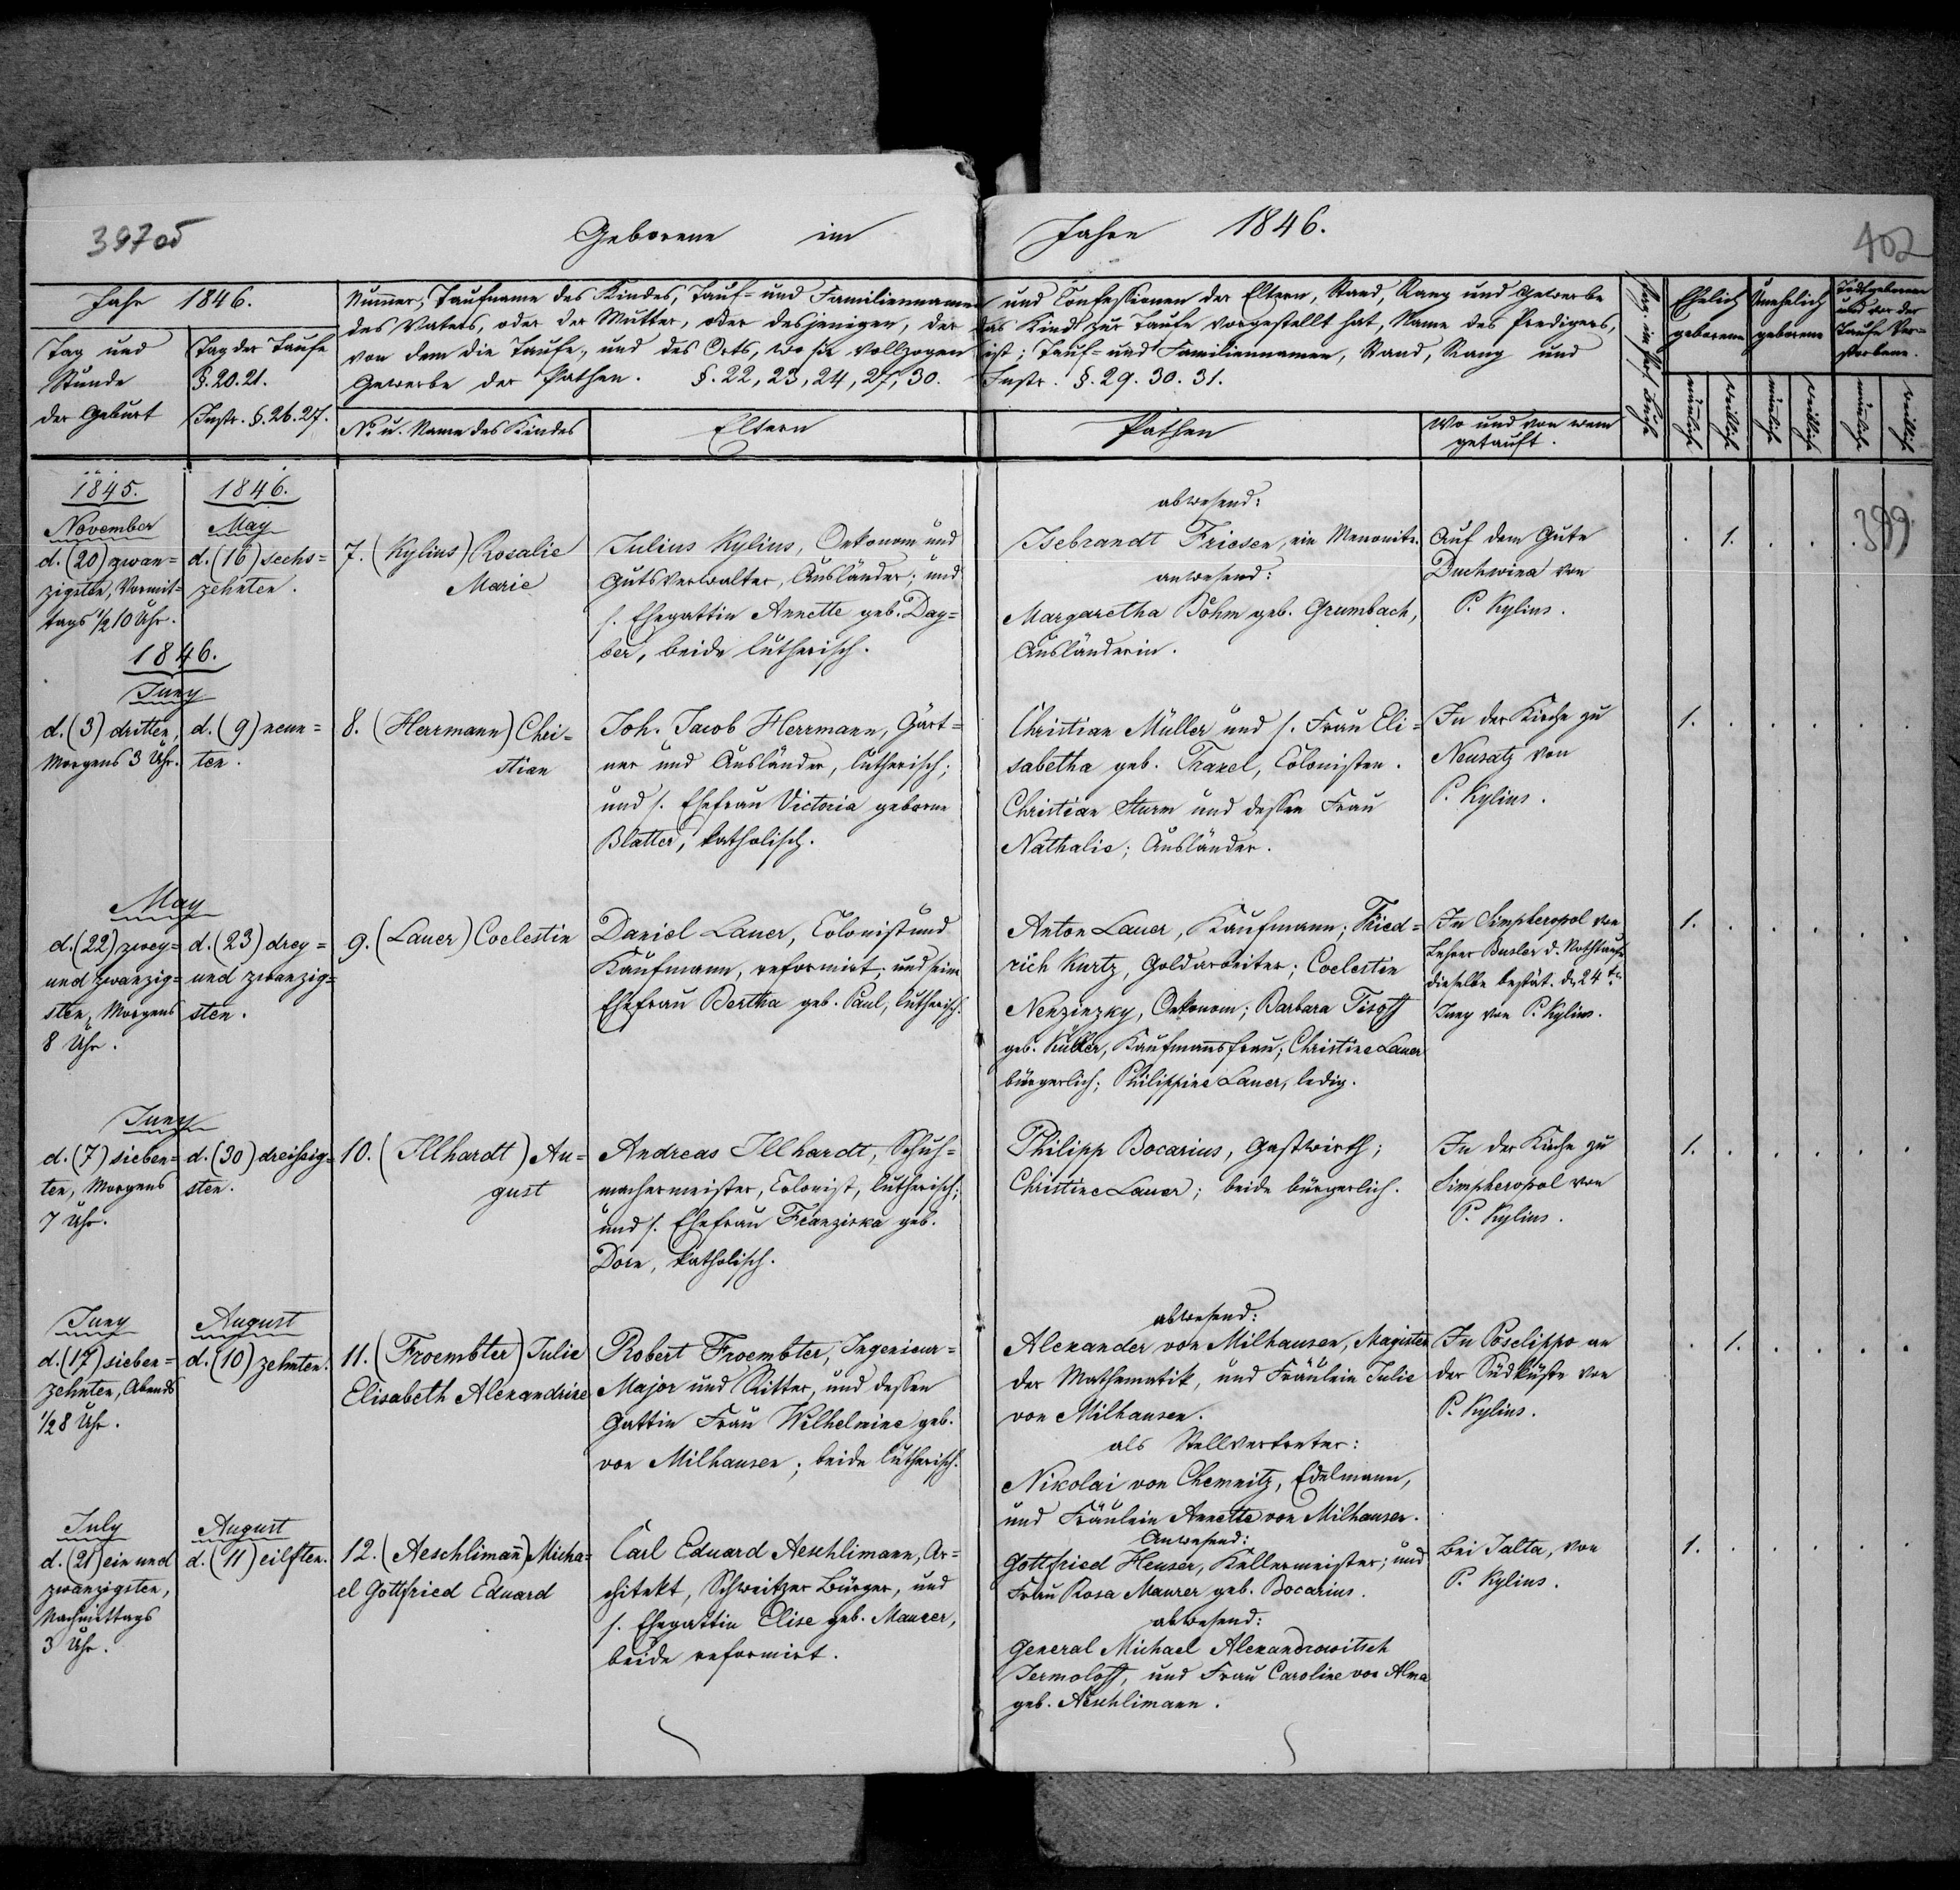 397об
Geborene im Jahre 1846.
402
Jahr 1846.
Tag und
Stunde
der Geburt
Tag der Taufe
§. 20. 21.
Instr. §. 26. 27.
Numer, Taufname des Kindes, Tauf- und Familiennamen und Confessionen der Eltern, Stand, Rang und Gewerbe
des Vaters, oder der Mutter, oder desjenigen, der das Kind zur Taufe vorgestellt hat, Name des Predigers,
von dem die Taufe, und des Orts, wo sie vollzogen ist; Tauf- und Familiennamen, Stand, Rang und
Gewerbe der Pathen. §. 22, 23, 24, 27, 30. Instr. §. 29. 30. 31.
No u. Name des Kindes
Eltern
Pathen
Wo und von wem
getauft.
Ehelich
geborene
Unehelich
geborene
Todtgeborene
und vor der
Taufe Ver=
storbene.
männliche
weibliche
männliche
weibliche
männliche
weibliche
1845.
November
d. (20) zwan=
zigsten, Vormit=
tags 1/2 10 Uhr.
1846.
May
d. (16) sechs=
zehnten.
7. (Kylius) Rosalie
Marie
Julius Kylius, Oekonom und
Gutsverwalter, Ausländer; und
s. Ehegattin Annette geb. Dag=
ber, beide lutherisch.
abwesend:
Isebrandt Friesen, ein Menonite.
anwesend:
Margaretha Böhm geb. Grumbach,
Ausländerin.
Auf dem Gute
Duchwina von
P. Kylius.
1.
399
1846.
Juny
d. (3) dritten,
Morgens 3 Uhr.
d. (9) neun=
ten.
8. (Herrmann) Chri=
stian
Joh. Jacob Herrmann, Gärt=
ner und Ausländer, lutherisch;
und s. Ehefrau Victoria geborne
Blatter, katholisch.
Christian Müller und s. Frau Eli=
sabetha geb. Traxel, Colonisten.
Christian Sturm und dessen Frau
Nathalie; Ausländer.
In der Kirche zu
Neusatz von
P. Kylius.
1.
May
d. (22) zwey=
und zwanzig=
sten, Morgens
8 Uhr.
d. (23) drey=
und zwanzig=
sten.
9. (Lauer) Coelestin
Daniel Lauer, Colonist und
Kaufmann, reformirt; und seine
Ehefrau Bertha geb. Paul, lutherisch.
Anton Lauer, Kaufmann; Fried=
rich Kurtz, Goldarbeiter; Coelestin
Nenzinzky, Oekonom; Barbara Tisoff
geb. Küller, Kaufmannsfrau; Christine Lauer
bürgerlich; Philippine Lauer, ledig.
In Simpheropol von
Lehrer Busler d. Nothtaufe
dieselbe bestät. d. 24ten
Juny von P. Kylius.
1.
Juny
d. (7) sieben=
ten, Morgens
7 Uhr.
d. (30) dreißig=
sten.
10. (Illhardt) Au=
gust
Andreas Illhardt, Schuh=
machermeister, Colonist, lutherisch;
und s. Ehefrau Franziska geb.
Dorn, katholisch.
Philipp Bocarius, Gastwirth;
Christine Lauer; beide bürgerlich.
In der Kirche zu
Simpheropol von
P. Kylius.
1.
Juny
d. (17) sieben=
zehnten, Abends
1/2 8 Uhr.
August
d. (10) zehnten.
11. (Froembter) Julie
Elisabeth Alexandrine
Robert Froembter, Ingenieur=
Major und Ritter, und dessen
Gattin Frau Wilhelmine geb.
von Milhausen; beide lutherisch.
abwesend:
Alexander von Milhausen, Magister
der Mathematik, und Fräulein Julie
von Milhausen.
als Stellvertreter:
Nikolai von Chemnitz, Edelmann,
und Fräulein Annette von Milhausen.
In Poselippo an
der Südküste von
P. Kylius.
1.
July
d. (21) ein und
zwanzigsten,
Nachmittags
3 Uhr.
August
d. (11) eilften.
12. (Aeschlimann) Micha=
el Gottfried Eduard
Carl Eduard Aeschlimann, Ar=
chitekt, Schweitzer Bürger, und
s. Ehegattin Elise geb. Maurer,
beide reformirt.
Anwesend:
Gottfried Heuser, Kellermeister; und
Frau Rosa Maurer geb. Bocarius.
abwesend:
General Michael Alexandrowitsch
Jermoloff, und Frau Caroline von Alma
geb. Aeschlimann.
Bei Jalta, von
P. Kylius.
1.